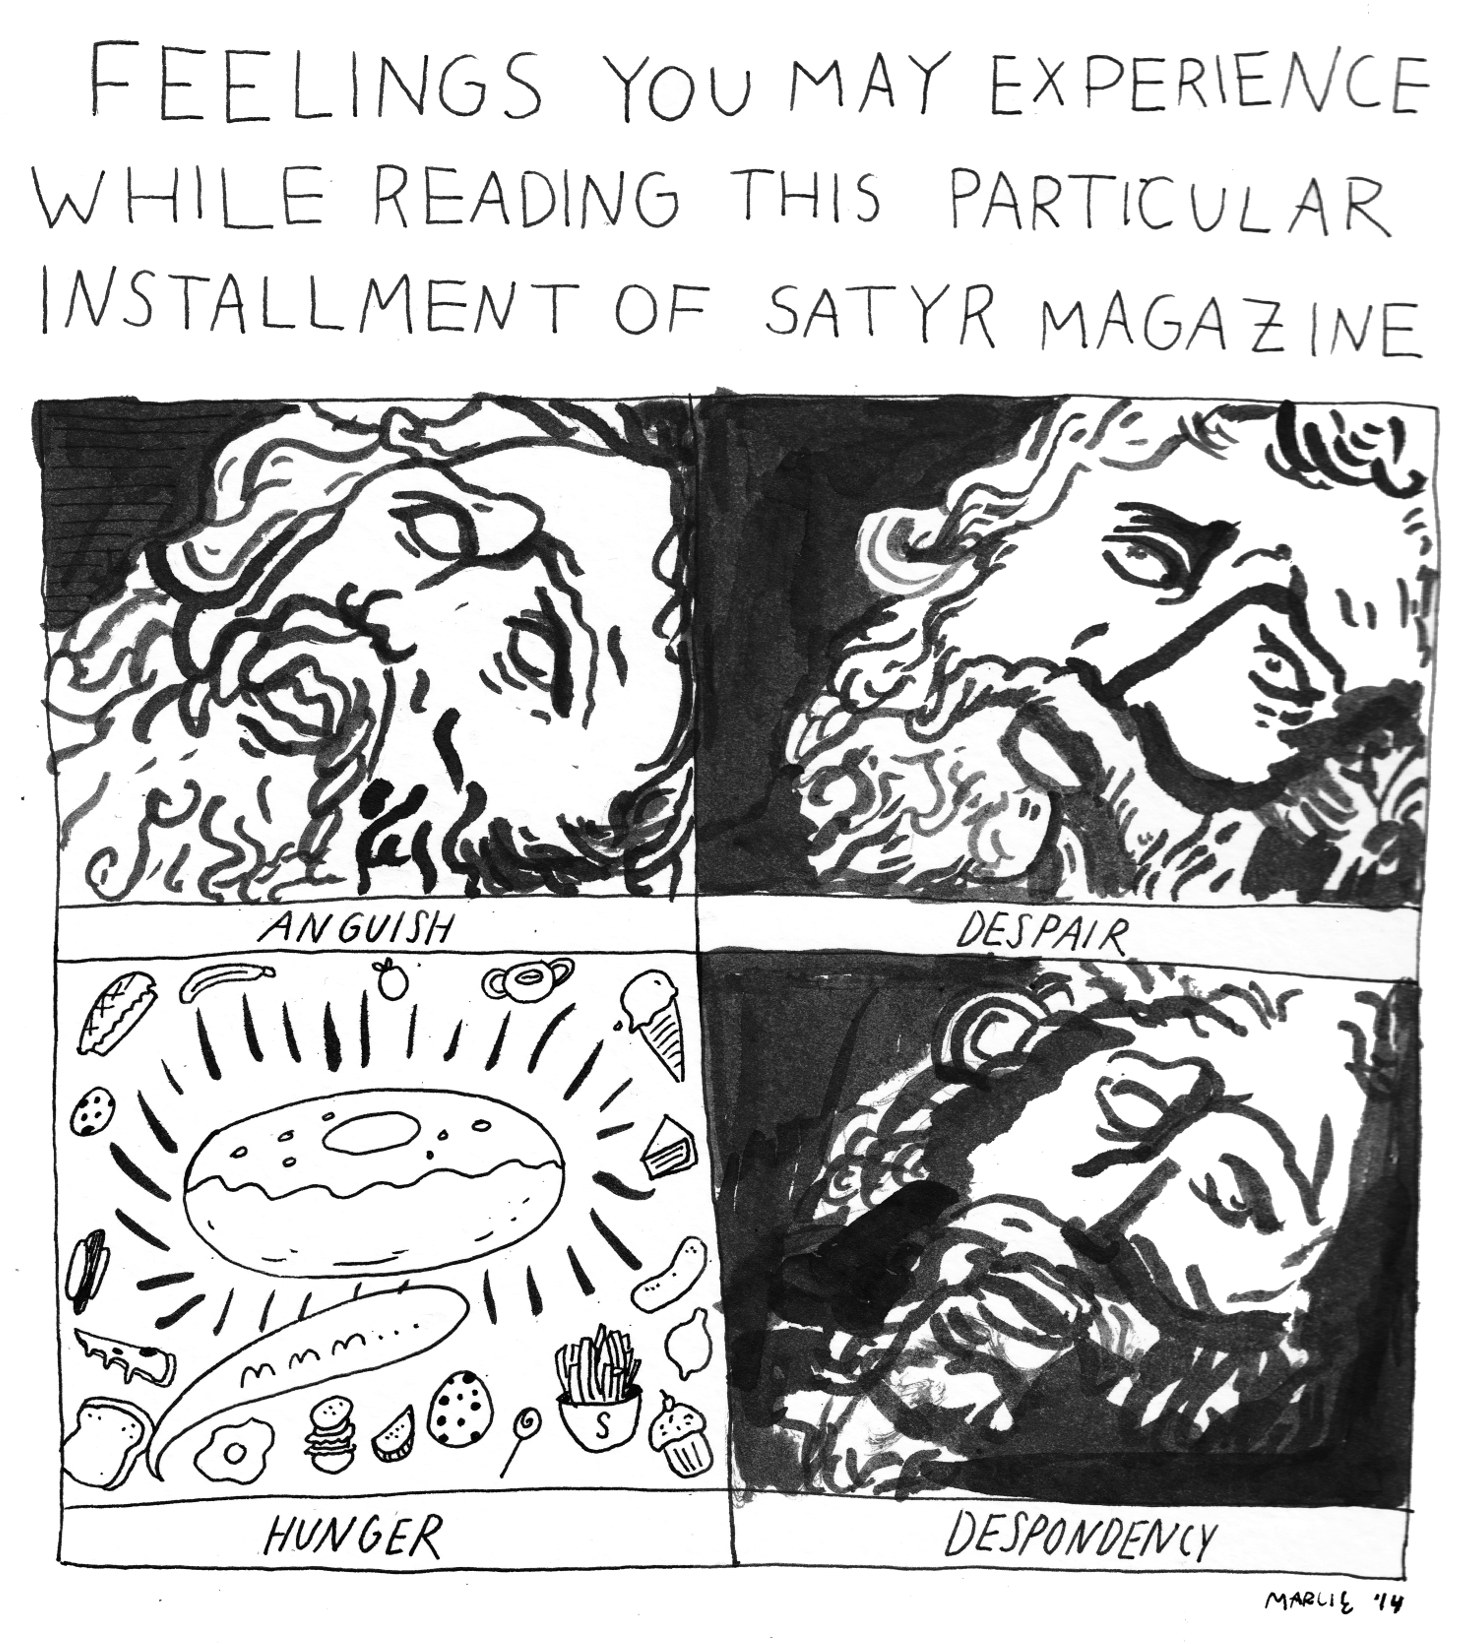 FEELINGS YOU MAY EXPERIENCE
WHILE READING THIS PARTICULAR
INSTALLMENT OF SATYR MAGAZINE
ANGUISH
DESPAIR
mmm...
S
HUNGER
DESPONDENCY
MARLIE '14